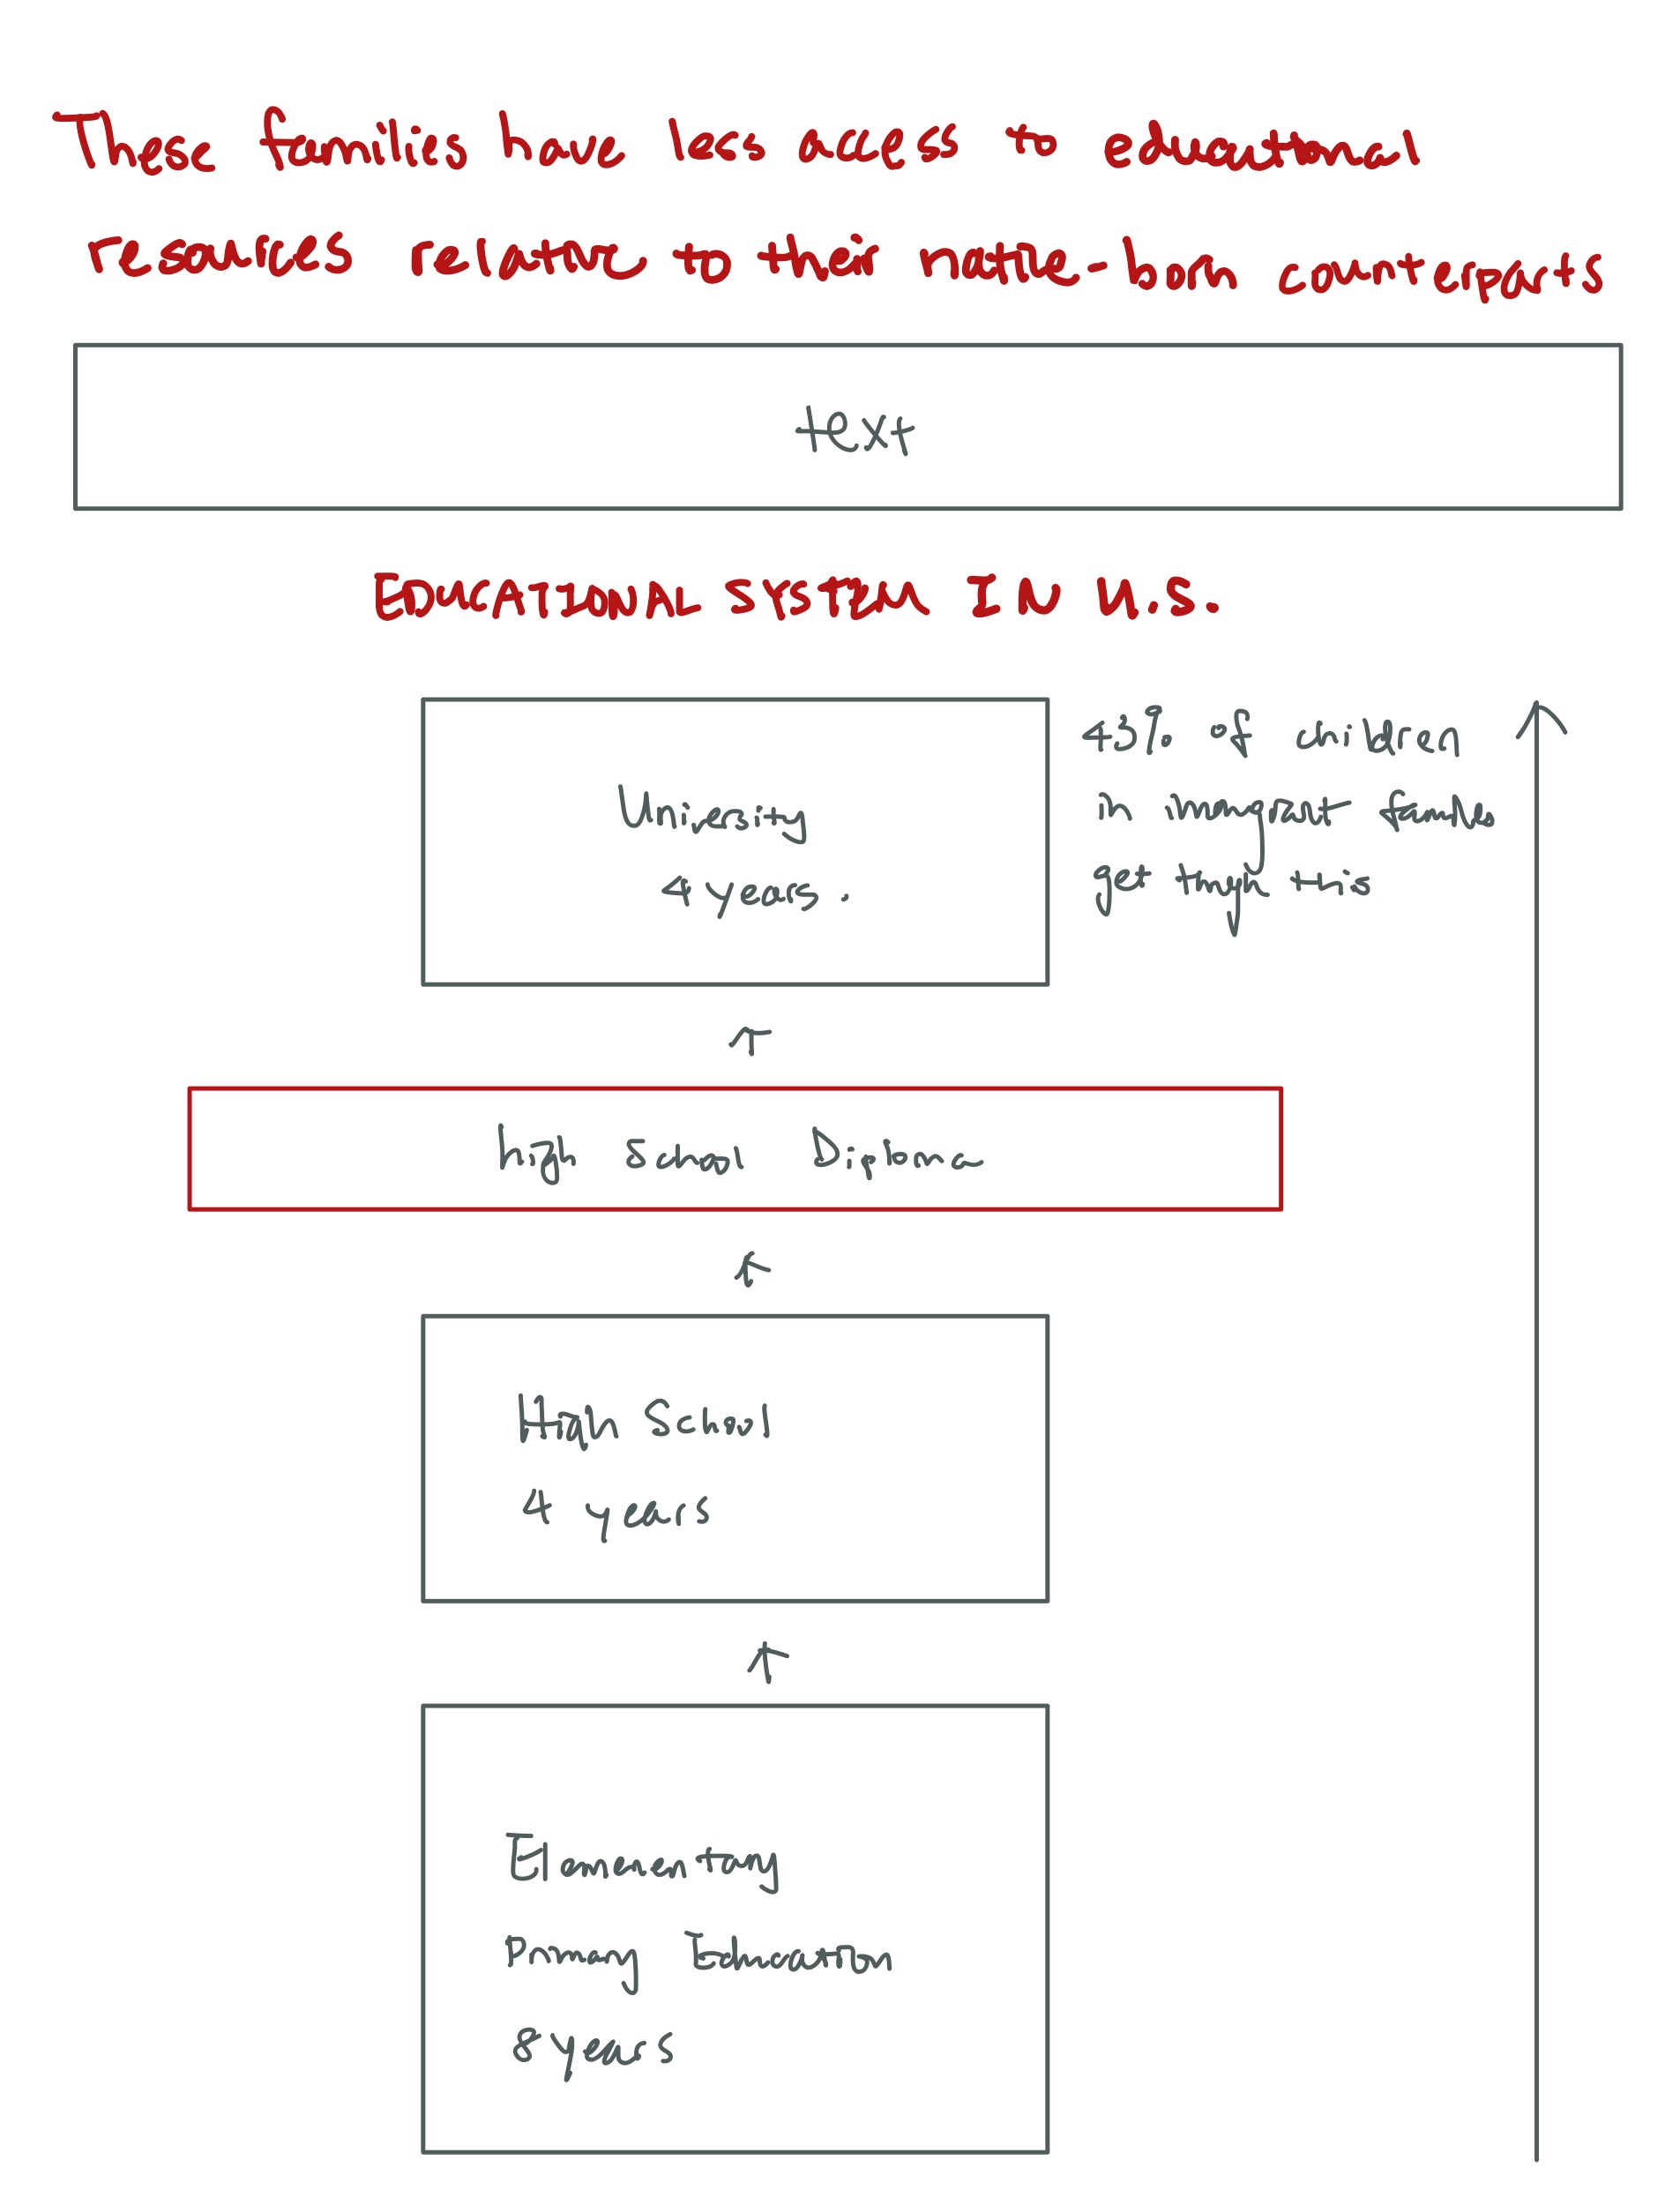 These families have less access to educational
resources relative to their native-born counterparts
text
EDUCATIONAL SYSTEM IN U.S.
University
4 years.
43% of children
in immigrant families
get through this
high school Diploma
High School
4 years
Elementary
Primary Education
8 years